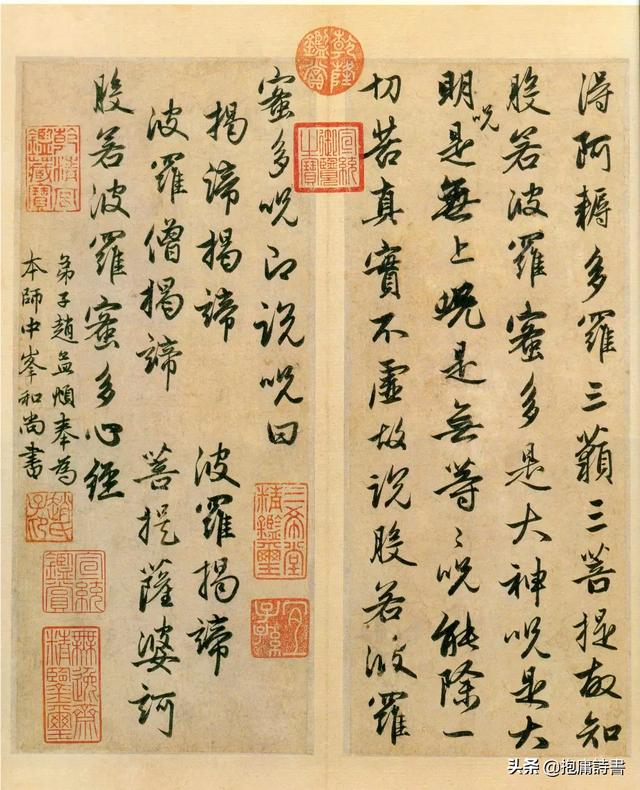 得阿耨多羅三藐三菩提故知
般若波羅蜜多是大神呪是大
明呪是無上呪是無等〻呪能除一
切苦真實不虛故說般若波羅
蜜多呪即說呪曰
揭諦揭諦 波羅揭諦
波羅僧揭諦 菩提薩婆訶
般若波羅蜜多心經
弟子趙孟頫奉為
本師中峯和尚書
乾隆鑑賞
宣統御覽之寶
三希堂精鑑璽
宜子孫
宣統鑑賞
無逸齋精鑒璽
头条 @抱庸詩書